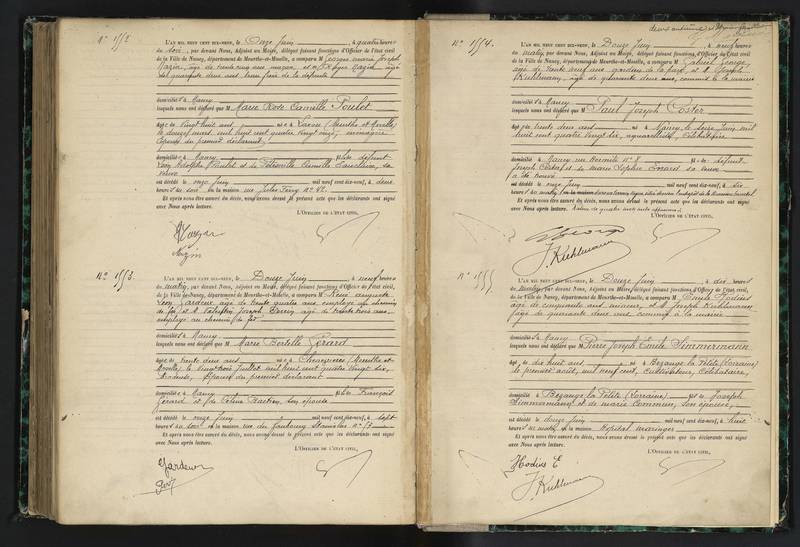 N° 1552
L'AN MIL NEUF CENT DIX-NEUF, le Onze Juin, à quatre heures
du soir, par devant Nous, Adjoint au Maire, délégué faisant fonctions d'Officier de l'état civil
de la Ville de Nancy, département de Meurthe-et-Moselle, a comparu M Georges Marie Joseph
âgé de trente cinq ans
de quarante deux ans
domiciliés à Nancy
lesquels nous ont déclaré que Marie Rose Camille Poulet
âgée de vingt huit ans née à Laxou (Meurthe et Moselle)
le douze mars mil huit cent quatre vingt onze, ménagère
Epouse du premier déclarant
domiciliée à Nancy fille de défunt
Léon Adolphe Poulet et de Camille, sa
veuve
est décédée le onze Juin mil neuf cent dix-neuf, à deux
heures du soir en la maison rue Jules Ferry n° 42.
Et après nous être assuré du décès, nous avons dressé le présent acte que les déclarants ont signé
avec Nous après lecture.
L'OFFICIER DE L'ÉTAT CIVIL,
N° 1553
L'AN MIL NEUF CENT DIX-NEUF, le Douze Juin, à neuf heures
du matin, par devant Nous, Adjoint au Maire, délégué faisant fonctions d'Officier de l'état civil,
de la Ville de Nancy, département de Meurthe-et-Moselle, a comparu M René Auguste
Léon Jardeur âgé de trente quatre ans, employé au chemin
de fer et M Valentin Joseph âgé de trente trois ans,
employé au chemin de fer
domiciliés à Nancy
lesquels nous ont déclaré que Marie Bertille Gérard
âgée de trente deux ans née à Chenevières (Meurthe-et-
Moselle), le vingt trois Juillet mil huit cent quatre vingt six,
Epouse du premier déclarant
domiciliée à Nancy fille de François
Gérard et de Céline Bastien, son épouse
est décédée le onze Juin mil neuf cent dix-neuf, à sept
heures du soir en la maison rue du faubourg Stanislas n° 13
Et après nous être assuré du décès, nous avons dressé le présent acte que les déclarants ont signé
avec Nous après lecture.
L'OFFICIER DE L'ÉTAT CIVIL,
Jardeur
N° 1554
L'AN MIL NEUF CENT DIX-NEUF, le Douze Juin, à neuf heures
du matin, par devant Nous, Adjoint au Maire, délégué faisant fonctions d'Officier de l'état civil,
de la Ville de Nancy, département de Meurthe-et-Moselle, a comparu M Gabriel George
âgé de trente neuf ans gardien de la paix et M Joseph
Kuhlmann, âgé de quarante deux ans, commis à la mairie
domiciliés à Nancy
lesquels nous ont déclaré que Paul Joseph Coster
âgé de trente deux ans né à Nancy le seize Juin mil
huit cent quatre vingt six, aquarelliste, célibataire
domicilié à Nancy rue n° 8 fils de défunt
Joseph Coster et de Marie Sophie Evrard sa veuve
a été trouvé
est décédé le onze Juin mil neuf cent dix-neuf, à dix
heures du matin
Et après nous être assuré du décès, nous avons dressé le présent acte que les déclarants ont signé
avec Nous après lecture.
L'OFFICIER DE L'ÉTAT CIVIL,
George
J. Kuhlmann
N° 1555
L'AN MIL NEUF CENT DIX-NEUF, le Douze Juin, à dix heures
du matin, par devant Nous, Adjoint au Maire, délégué faisant fonctions d'Officier de l'état civil,
de la Ville de Nancy, département de Meurthe-et-Moselle, a comparu M Emile Hodius
âgé de cinquante ans, et M Joseph Kuhlmann
âgé de quarante deux ans, commis à la mairie
domiciliés à Nancy
lesquels nous ont déclaré que Pierre Joseph Emile Simmermann
âgé de dix huit ans né à Bezange la Petite (Lorraine)
le premier août mil neuf cent, cultivateur, célibataire,
domicilié à Bezange la Petite (Lorraine) fils de Joseph
Simmermann et de Marie Commun, son épouse,
est décédé le douze Juin mil neuf cent dix-neuf, à huit
heures du matin en la maison Hôpital Maringer
Et après nous être assuré du décès, nous avons dressé le présent acte que les déclarants ont signé
avec Nous après lecture.
L'OFFICIER DE L'ÉTAT CIVIL,
Hodius E
J. Kuhlmann